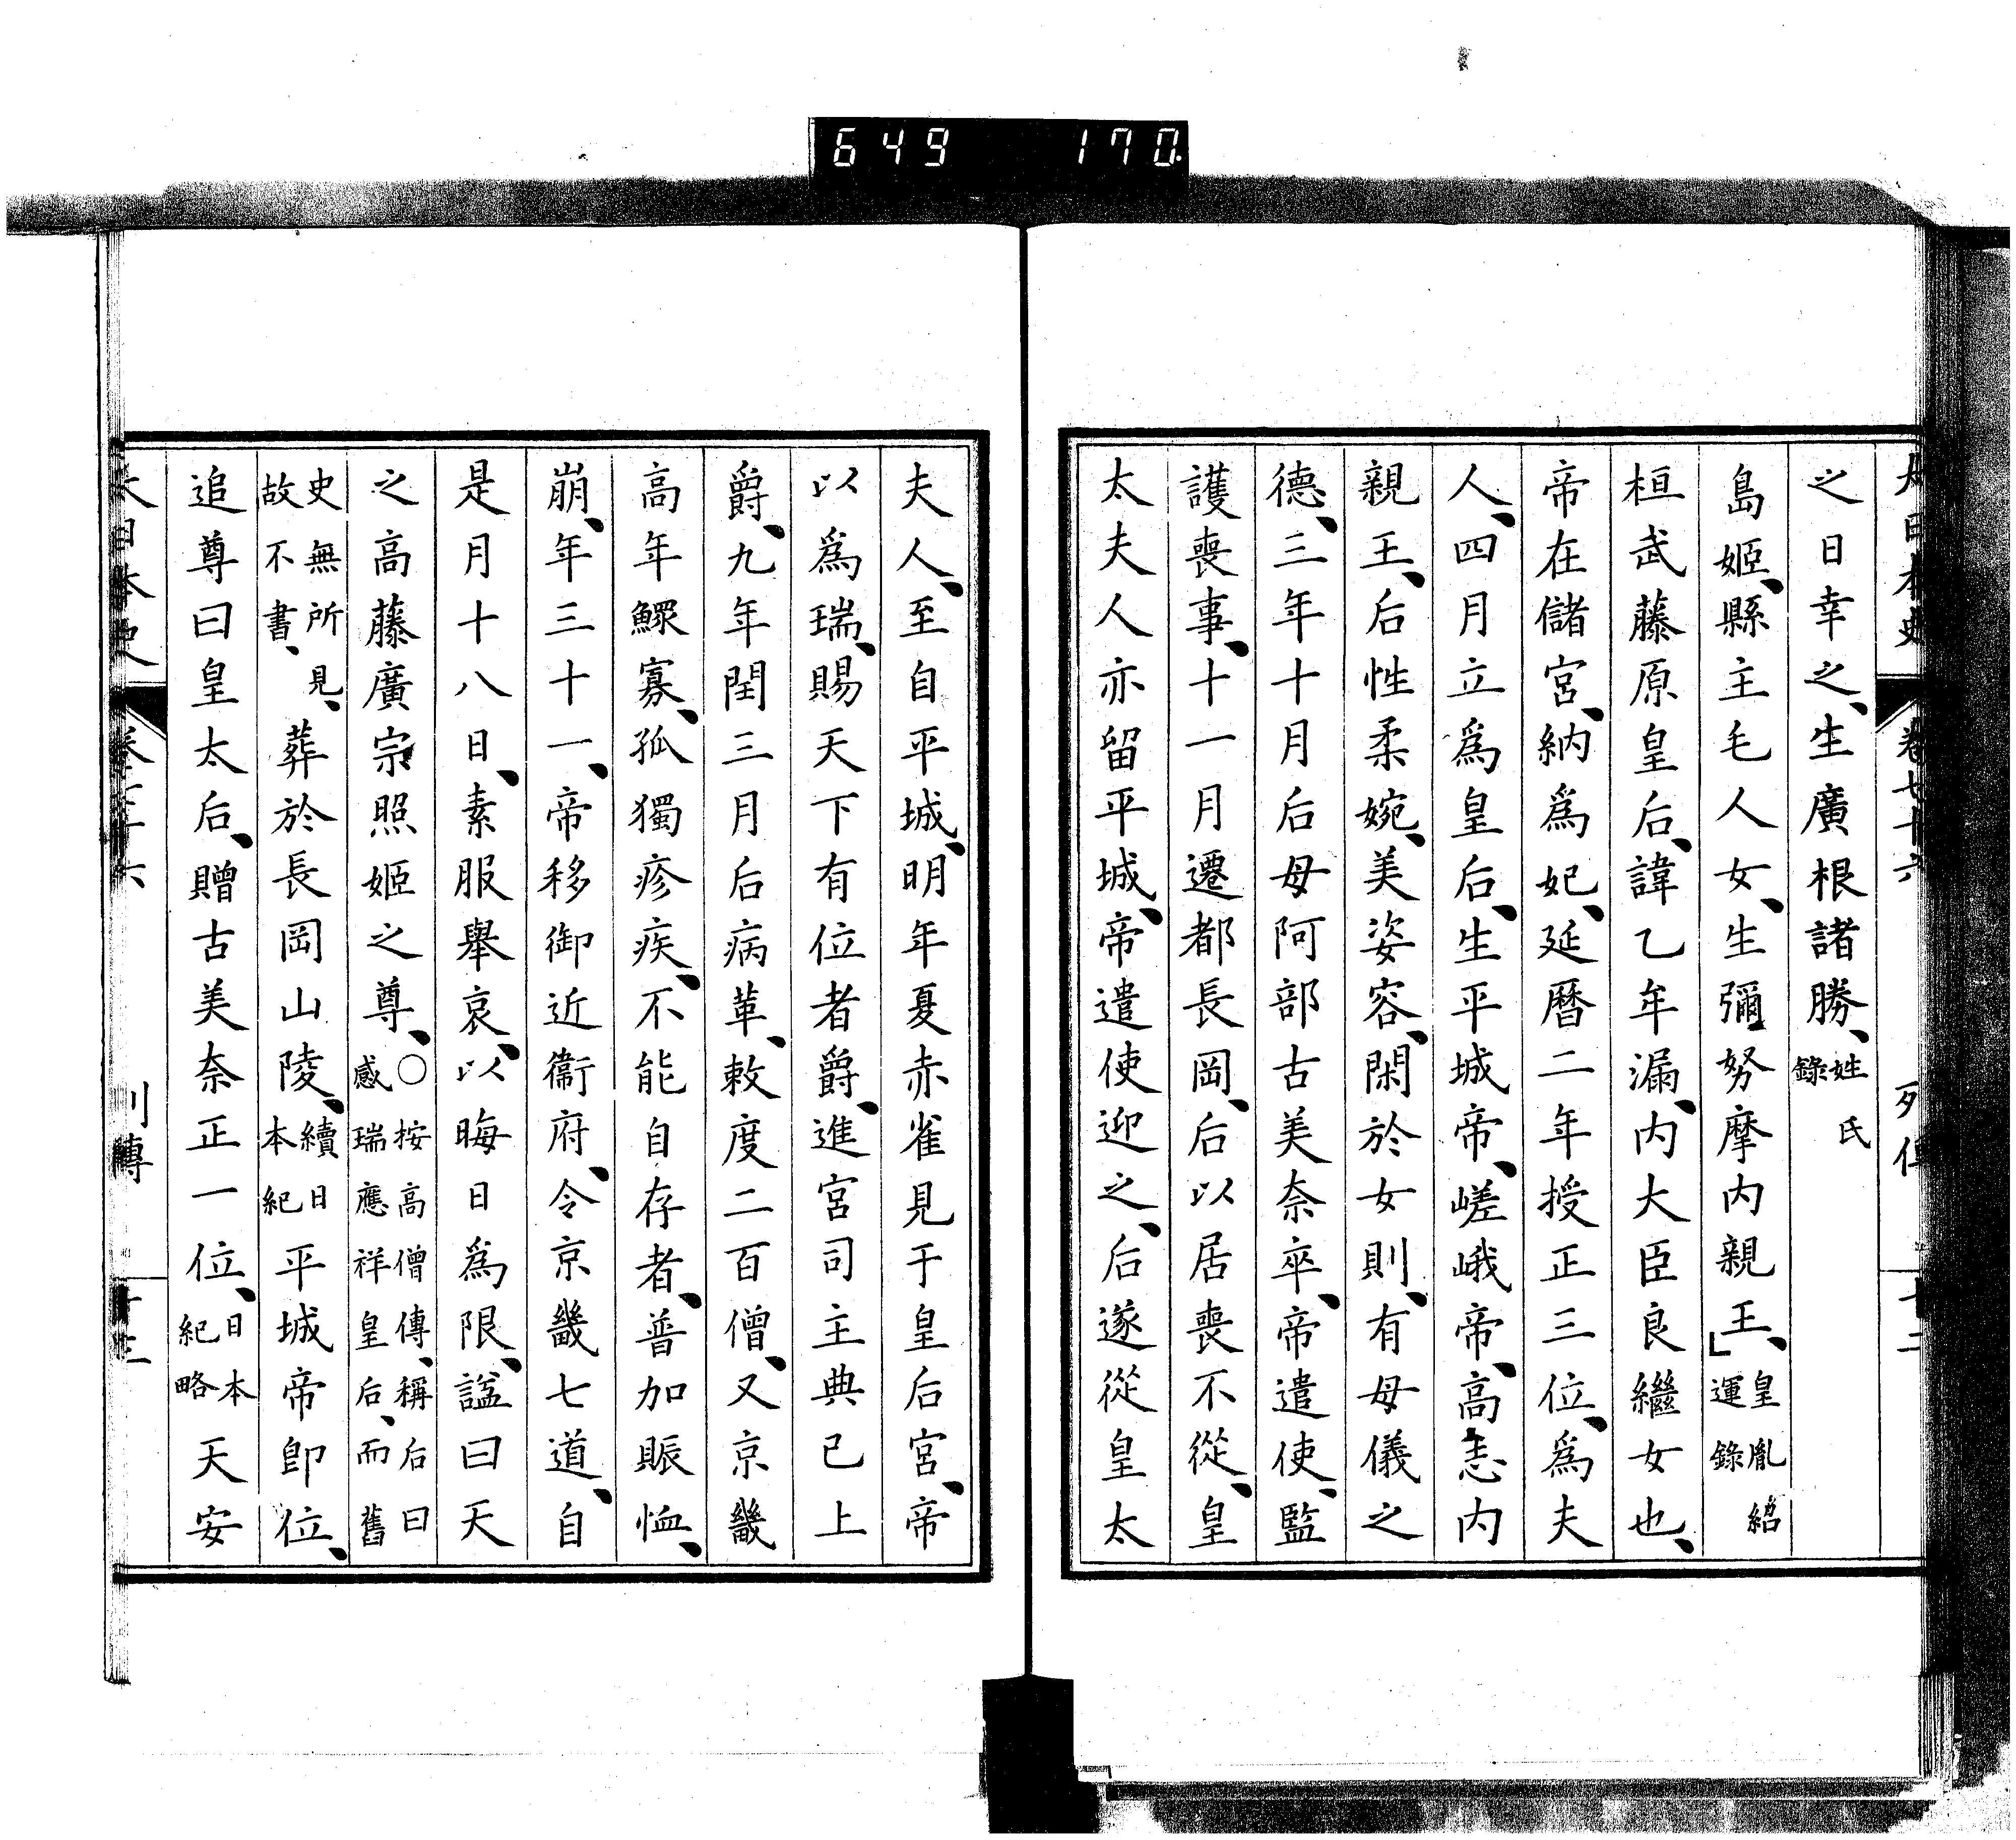 649 170
大日本史 卷七十六 列傳 十二
之日幸之、生廣根諸勝、姓氏錄
島姬、縣主毛人女、生彌努摩內親王、皇胤紹運錄
桓武藤原皇后、諱乙牟漏、內大臣良繼女也、
帝在儲宮、納爲妃、延曆二年授正三位、爲夫
人、四月立爲皇后、生平城帝、嵯峨帝、高志內
親王、后性柔婉、美姿容、閑於女則、有母儀之
德、三年十月后母阿部古美奈卒、帝遣使、監
護喪事、十一月遷都長岡、后以居喪不從、皇
太夫人亦留平城、帝遣使迎之、后遂從皇太
夫人、至自平城、明年夏赤雀見于皇后宮、帝
以爲瑞、賜天下有位者爵、進宮司主典已上
爵、九年閏三月后病革、敕度二百僧、又京畿
高年鰥寡、孤獨疹疾、不能自存者、普加賑恤、
崩、年三十一、帝移御近衞府、令京畿七道、自
是月十八日、素服舉哀、以晦日爲限、諡曰天
之高藤廣宗照姬之尊、○按高僧傳、稱后曰感瑞應祥皇后、而舊
史無所見、故不書、葬於長岡山陵、續日本紀平城帝卽位、
追尊曰皇太后、贈古美奈正一位、日本紀略天安
大日本史 卷七十六 列傳 十三